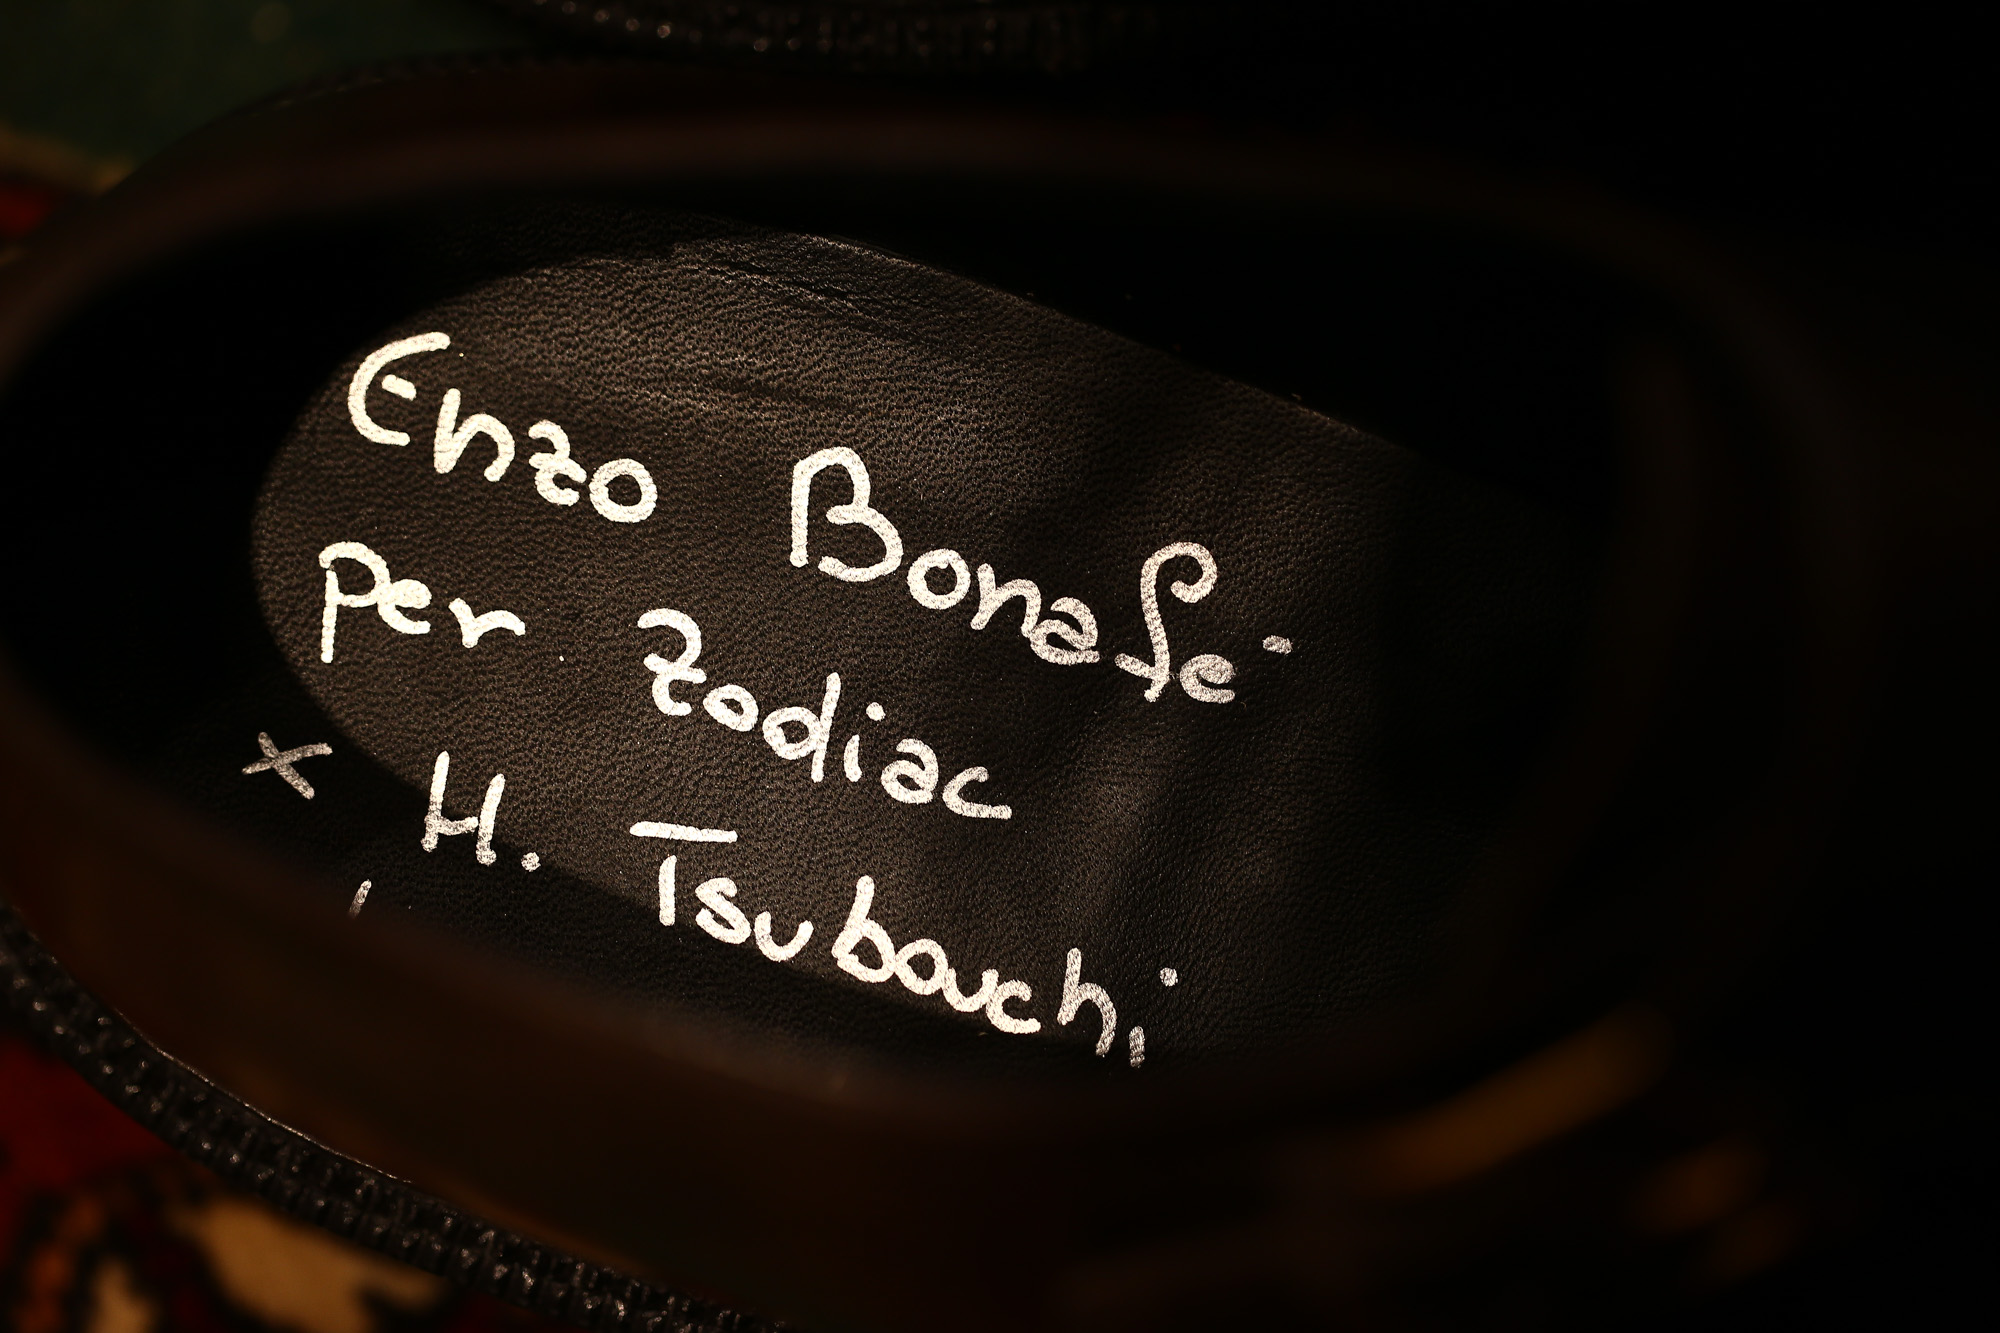 Enzo Bonafe'
per zodiac
x H. Tsubouchi